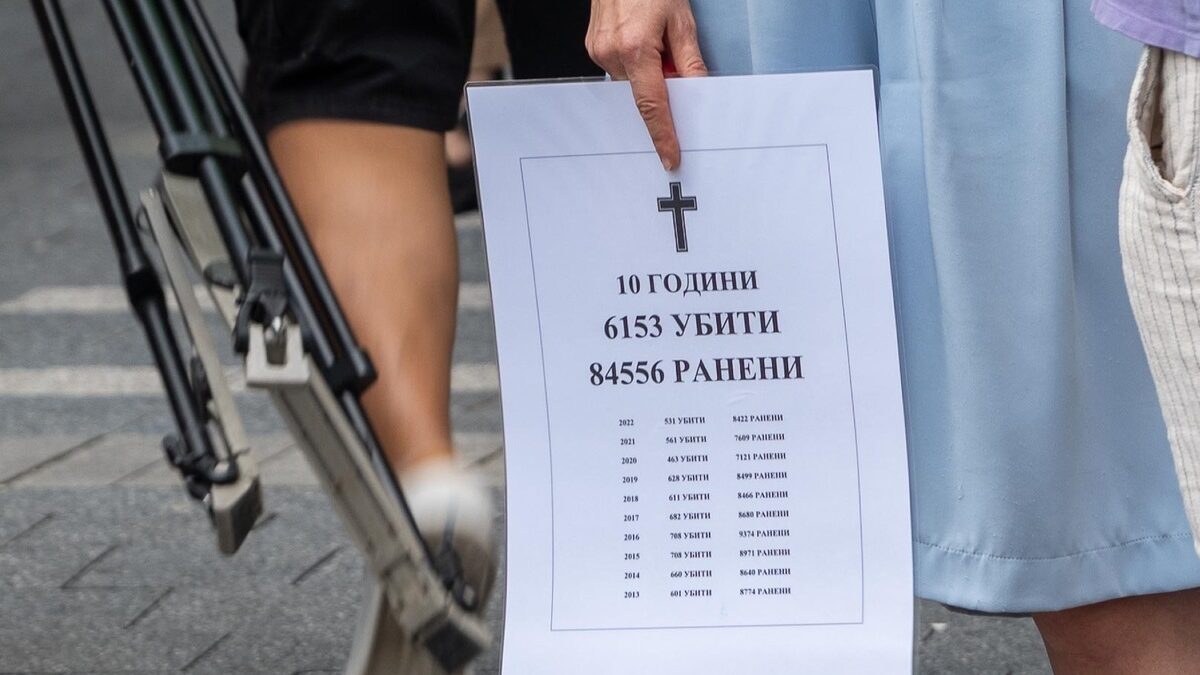 10 ГОДИНИ
6153 УБИТИ
84556 РАНЕНИ
2022 531 УБИТИ 8422 РАНЕНИ
2021 561 УБИТИ 7609 РАНЕНИ
2020 463 УБИТИ 7121 РАНЕНИ
2019 628 УБИТИ 8499 РАНЕНИ
2018 611 УБИТИ 8466 РАНЕНИ
2017 682 УБИТИ 8680 РАНЕНИ
2016 708 УБИТИ 9374 РАНЕНИ
2015 708 УБИТИ 8971 РАНЕНИ
2014 660 УБИТИ 8640 РАНЕНИ
2013 601 УБИТИ 8774 РАНЕНИ